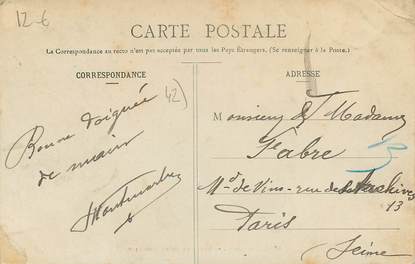 12-6
CARTE POSTALE
La Correspondance au recto n'est pas acceptée par tous les Pays Étrangers. (Se renseigner à la Poste.)
CORRESPONDANCE
ADRESSE
42
Bonne Poignée
de main
Monsieur et Madame
Fabre
Md de Vins - rue de
13
Paris
Seine